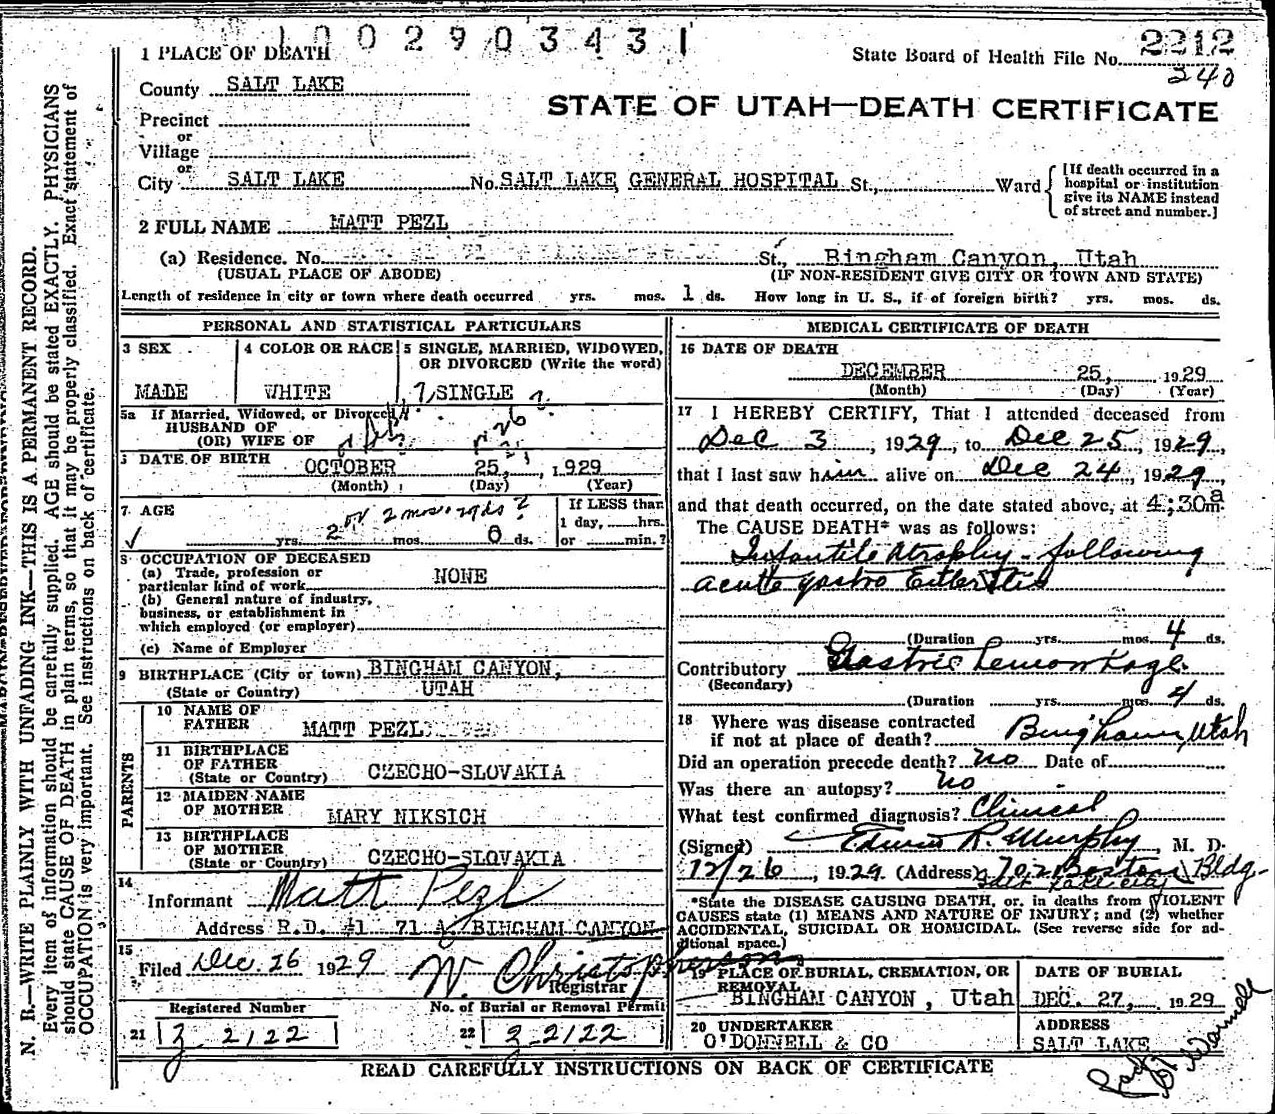 1 0 0 2 9 0 3 4 3 1
1 PLACE OF DEATH
State Board of Health File No. 2212
240
County SALT LAKE
STATE OF UTAH—DEATH CERTIFICATE
Precinct
or
Village
or
City SALT LAKE No. SALT LAKE GENERAL HOSPITAL St., Ward
[If death occurred in a hospital or institution give its NAME instead of street and number.]
2 FULL NAME MATT PEZL
(a) Residence. No. St., Bingham Canyon, Utah
(USUAL PLACE OF ABODE) (IF NON-RESIDENT GIVE CITY OR TOWN AND STATE)
Length of residence in city or town where death occurred yrs. mos. 1 ds. How long in U. S., if of foreign birth? yrs. mos. ds.
PERSONAL AND STATISTICAL PARTICULARS
3 SEX
MADE
4 COLOR OR RACE
WHITE
5 SINGLE, MARRIED, WIDOWED, OR DIVORCED (Write the word)
SINGLE
5a If Married, Widowed, or Divorced
HUSBAND OF
(OR) WIFE OF
DATE OF BIRTH OCTOBER 25, 1929
(Month) (Day) (Year)
7 AGE
or 2 mos. 29 ds ?
yrs. 2 mos 0 ds.
If LESS than
1 day, hrs.
or min.?
8 OCCUPATION OF DECEASED
(a) Trade, profession or
particular kind of work NONE
(b) General nature of industry,
business, or establishment in
which employed (or employer)
(c) Name of Employer
9 BIRTHPLACE (City or town) BINGHAM CANYON,
(State or Country) UTAH
PARENTS
10 NAME OF
FATHER MATT PEZL
11 BIRTHPLACE
OF FATHER
(State or Country) CZECHO-SLOVAKIA
12 MAIDEN NAME
OF MOTHER MARY NIKSICH
13 BIRTHPLACE
OF MOTHER
(State or Country) CZECHO-SLOVAKIA
14
Informant Matt Pezl
Address R.D. #1 71 A BINGHAM CANYON
15
Filed Dec. 26 1929 W. Christopherson
Registrar
Registered Number No. of Burial or Removal Permit
21 Z 2122 22 Z 2122
MEDICAL CERTIFICATE OF DEATH
16 DATE OF DEATH
DECEMBER 25, 1929
(Month) (Day) (Year)
17 I HEREBY CERTIFY, That I attended deceased from
Dec 3, 1929, to Dec 25, 1929,
that I last saw him alive on Dec 24, 1929,
and that death occurred, on the date stated above, at 4;30 a m.
The CAUSE DEATH* was as follows:
Infantile Atrophy - following
acute gastro Enteritis
(Duration yrs. mos 4 ds.
Contributory Gastric hemorrhage
(Secondary)
(Duration yrs. mos. 4 ds.
18 Where was disease contracted
if not at place of death? Bingham, Utah
Did an operation precede death? no Date of
Was there an autopsy? no
What test confirmed diagnosis? Clinical
(Signed) Edwin R. Murphy, M. D.
12/26, 1929. (Address) 702 Boston Bldg.
Salt Lake City
*State the DISEASE CAUSING DEATH, or, in deaths from VIOLENT
CAUSES state (1) MEANS AND NATURE OF INJURY; and (2) whether
ACCIDENTAL, SUICIDAL OR HOMICIDAL. (See reverse side for ad-
ditional space.)
19 PLACE OF BURIAL, CREMATION, OR
REMOVAL
BINGHAM CANYON, Utah
DATE OF BURIAL
DEC. 27, 1929
20 UNDERTAKER
O'DONNELL & CO
ADDRESS
SALT LAKE
READ CAREFULLY INSTRUCTIONS ON BACK OF CERTIFICATE
N. B.—WRITE PLAINLY WITH UNFADING INK—THIS IS A PERMANENT RECORD.
Every item of information should be carefully supplied. AGE should be stated EXACTLY. PHYSICIANS
should state CAUSE OF DEATH in plain terms, so that it may be properly classified. Exact statement of
OCCUPATION is very important. See instructions on back of certificate.